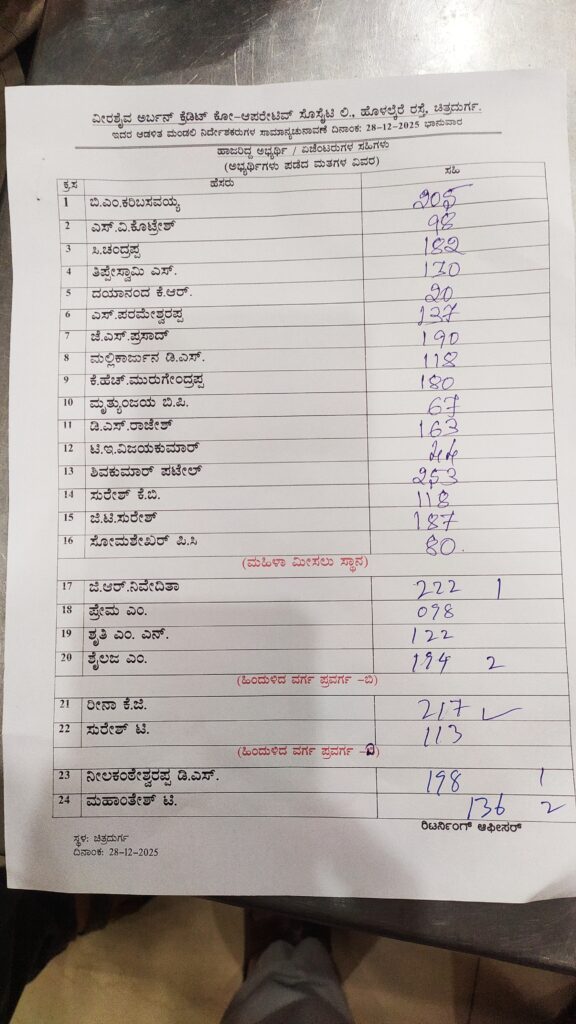 ವೀರಶೈವ ಅರ್ಬನ್ ಕ್ರೆಡಿಟ್ ಕೋ-ಆಪರೇಟಿವ್ ಸೊಸೈಟಿ ಲಿ., ಹೊಳಲ್ಕೆರೆ ರಸ್ತೆ, ಚಿತ್ರದುರ್ಗ.
ಇದರ ಆಡಳಿತ ಮಂಡಲಿ ನಿರ್ದೇಶಕರುಗಳ ಸಾಮಾನ್ಯಚುನಾವಣೆ ದಿನಾಂಕ: 28-12-2025 ಭಾನುವಾರ
ಹಾಜರಿದ್ದ ಅಭ್ಯರ್ಥಿ / ಏಜೆಂಟರುಗಳ ಸಹಿಗಳು
(ಅಭ್ಯರ್ಥಿಗಳು ಪಡೆದ ಮತಗಳ ವಿವರ)
ಕ್ರ.ಸ ಹೆಸರು ಸಹಿ
1 ಬಿ.ಎಂ.ಕರಿಬಸವಯ್ಯ 205
2 ಎಸ್.ವಿ.ಕೊಟ್ರೇಶ್ 98
3 ಸಿ.ಚಂದ್ರಪ್ಪ 182
4 ತಿಪ್ಪೇಸ್ವಾಮಿ ಎಸ್. 170
5 ದಯಾನಂದ ಕೆ.ಆರ್. 20
6 ಎಸ್.ಪರಮೇಶ್ವರಪ್ಪ 127
7 ಜೆ.ಎಸ್.ಪ್ರಸಾದ್ 190
8 ಮಲ್ಲಿಕಾರ್ಜುನ ಡಿ.ಎಸ್. 118
9 ಕೆ.ಹೆಚ್.ಮುರುಗೇಂದ್ರಪ್ಪ 180
10 ಮೃತ್ಯುಂಜಯ ಬಿ.ಪಿ. 67
11 ಡಿ.ಎಸ್.ರಾಜೇಶ್ 163
12 ಟಿ.ಇ.ವಿಜಯಕುಮಾರ್ 44
13 ಶಿವಕುಮಾರ್ ಪಟೇಲ್ 253
14 ಸುರೇಶ್ ಕೆ.ಬಿ. 118
15 ಜಿ.ಟಿ.ಸುರೇಶ್ 187
16 ಸೋಮಶೇಖರ್ ಪಿ.ಸಿ 80.
(ಮಹಿಳಾ ಮೀಸಲು ಸ್ಥಾನ)
17 ಜಿ.ಆರ್.ನಿವೇದಿತಾ 222 1
18 ಪ್ರೇಮ ಎಂ. 098
19 ಶೃತಿ ಎಂ. ಎನ್. 122
20 ಶೈಲಜ ಎಂ. 194 2
(ಹಿಂದುಳಿದ ವರ್ಗ ಪ್ರವರ್ಗ -ಬಿ)
21 ರೀನಾ ಕೆ.ಜಿ. 217 ✓
22 ಸುರೇಶ್ ಟಿ. 113
(ಹಿಂದುಳಿದ ವರ್ಗ ಪ್ರವರ್ಗ -)
23 ನೀಲಕಂಠೇಶ್ವರಪ್ಪ ಡಿ.ಎಸ್. 198 1
24 ಮಹಾಂತೇಶ್ ಟಿ. 136 2
ರಿಟರ್ನಿಂಗ್ ಆಫೀಸರ್
ಸ್ಥಳ: ಚಿತ್ರದುರ್ಗ
ದಿನಾಂಕ: 28-12-2025